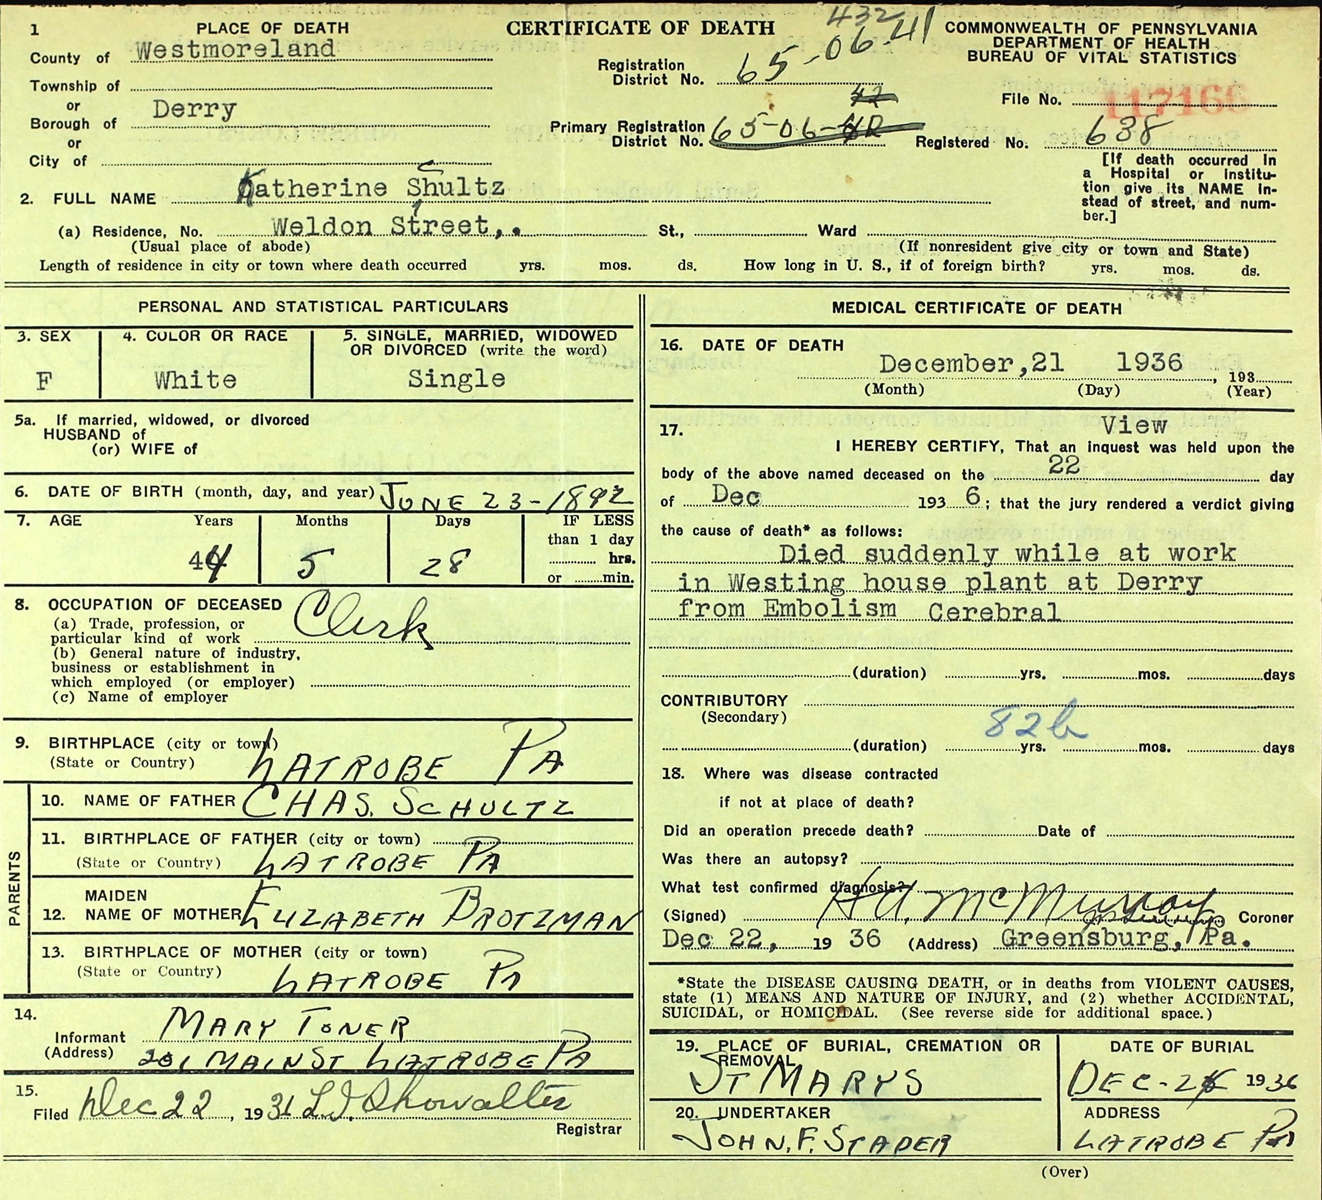 1 PLACE OF DEATH
County of Westmoreland
Township of
or
Borough of Derry
or
City of
CERTIFICATE OF DEATH
432
Registration District No. 65-06-41
42
Primary Registration District No. 65-06-
COMMONWEALTH OF PENNSYLVANIA
DEPARTMENT OF HEALTH
BUREAU OF VITAL STATISTICS
File No. 117166
Registered No. 638
[If death occurred in
a Hospital or Institu-
tion give its NAME in-
stead of street, and num-
ber.]
2. FULL NAME Katherine Schultz
(a) Residence, No. Weldon Street,. St., Ward
(Usual place of abode) (If nonresident give city or town and State)
Length of residence in city or town where death occurred yrs. mos. ds. How long in U. S., if of foreign birth? yrs. mos. ds.
PERSONAL AND STATISTICAL PARTICULARS
3. SEX
F
4. COLOR OR RACE
White
5. SINGLE, MARRIED, WIDOWED
OR DIVORCED (write the word)
Single
5a. If married, widowed, or divorced
HUSBAND of
(or) WIFE of
6. DATE OF BIRTH (month, day, and year) JUNE 23-1892
7. AGE Years Months Days IF LESS
than 1 day
hrs.
or min.
44 5 28
8. OCCUPATION OF DECEASED
(a) Trade, profession, or
particular kind of work Clerk
(b) General nature of industry,
business or establishment in
which employed (or employer)
(c) Name of employer
9. BIRTHPLACE (city or town)
(State or Country) LATROBE PA
PARENTS
10. NAME OF FATHER CHAS. SCHULTZ
11. BIRTHPLACE OF FATHER (city or town)
(State or Country) LATROBE PA
MAIDEN
12. NAME OF MOTHER ELIZABETH BROTZMAN
13. BIRTHPLACE OF MOTHER (city or town)
(State or Country) LATROBE PA
14.
Informant MARY TONER
(Address) 201 MAIN ST LATROBE PA
15.
Filed Dec 22, 1936 L.J. Showalter
Registrar
MEDICAL CERTIFICATE OF DEATH
16. DATE OF DEATH
December,21 1936, 193
(Month) (Day) (Year)
17. View
I HEREBY CERTIFY, That an inquest was held upon the
body of the above named deceased on the 22 day
of Dec 193 6; that the jury rendered a verdict giving
the cause of death* as follows:
Died suddenly while at work
in Westing house plant at Derry
from Embolism Cerebral
(duration) yrs. mos. days
CONTRIBUTORY
(Secondary)
82b
(duration) yrs. mos. days
18. Where was disease contracted
if not at place of death?
Did an operation precede death? Date of
Was there an autopsy?
What test confirmed diagnosis?
(Signed) H.A. McMurray Coroner
Dec 22, 19 36 (Address) Greensburg, Pa.
*State the DISEASE CAUSING DEATH, or in deaths from VIOLENT CAUSES,
state (1) MEANS AND NATURE OF INJURY, and (2) whether ACCIDENTAL,
SUICIDAL, or HOMICIDAL. (See reverse side for additional space.)
19. PLACE OF BURIAL, CREMATION OR
REMOVAL
ST MARYS
DATE OF BURIAL
DEC-24 1936
20. UNDERTAKER
JOHN. F. STADER
ADDRESS
LATROBE PA
(Over)